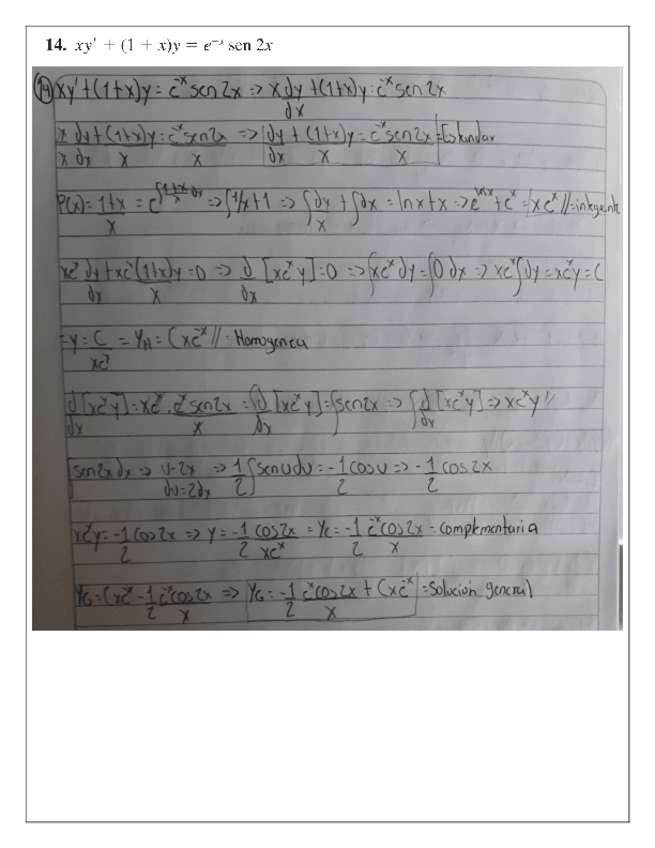 14. xy' + (1 + x)y = e⁻ˣ sen 2x
14) xy' + (1+x)y = e⁻ˣ sen 2x => x dy/dx + (1+x)y = e⁻ˣ sen 2x
x/x dy/dx + (1+x)y/x = e⁻ˣ sen 2x/x => dy/dx + (1+x)y/x = e⁻ˣ sen 2x/x = Estandar
P(x) = 1+x/x = e^∫1+x/x dx => ∫1/x+1 => ∫dx/x + ∫dx = lnx+x => e^lnx + eˣ = xeˣ // = integrante
xeˣ dy/dx + xeˣ(1+x)y/x = 0 => d/dx [xeˣy] = 0 => ∫xeˣ dy = ∫0 dx => xeˣ∫dy = xeˣy = C
= y = C/xeˣ = YH = Cxe⁻ˣ // = Homogenea
d/dx [xeˣy] = xeˣ . e⁻ˣ sen 2x/x = ∫d/dx [xeˣy] = ∫sen2x => ∫d/dx [xeˣy] => xeˣy //
∫sen 2x dx => u=2x du=2dx => 1/2 ∫sen u du = -1/2 cos u => -1/2 cos 2x
xeˣy = -1/2 cos 2x => y = -1/2 cos2x/xeˣ = Yc = -1/2 e⁻ˣcos2x/x = complementaria
YG = Cxe⁻ˣ - 1/2 e⁻ˣcos2x/x => YG = -1/2 e⁻ˣcos2x/x + Cxe⁻ˣ = Solución general